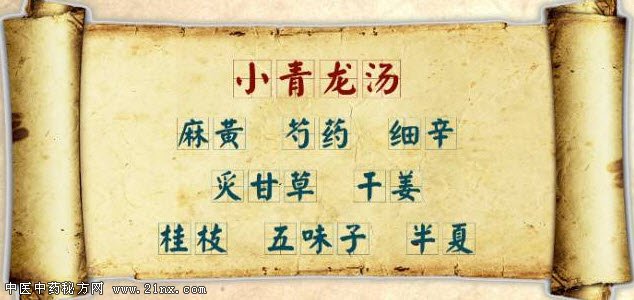 小青龙汤
麻黄 芍药 细辛
炙甘草 干姜
桂枝 五味子 半夏
中医中药秘方网 www.21nx.com